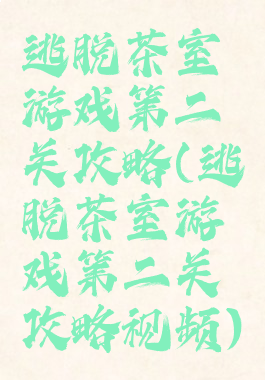 逃脱茶室
游戏第二
关攻略(逃
脱茶室游
戏第二关
攻略视频)